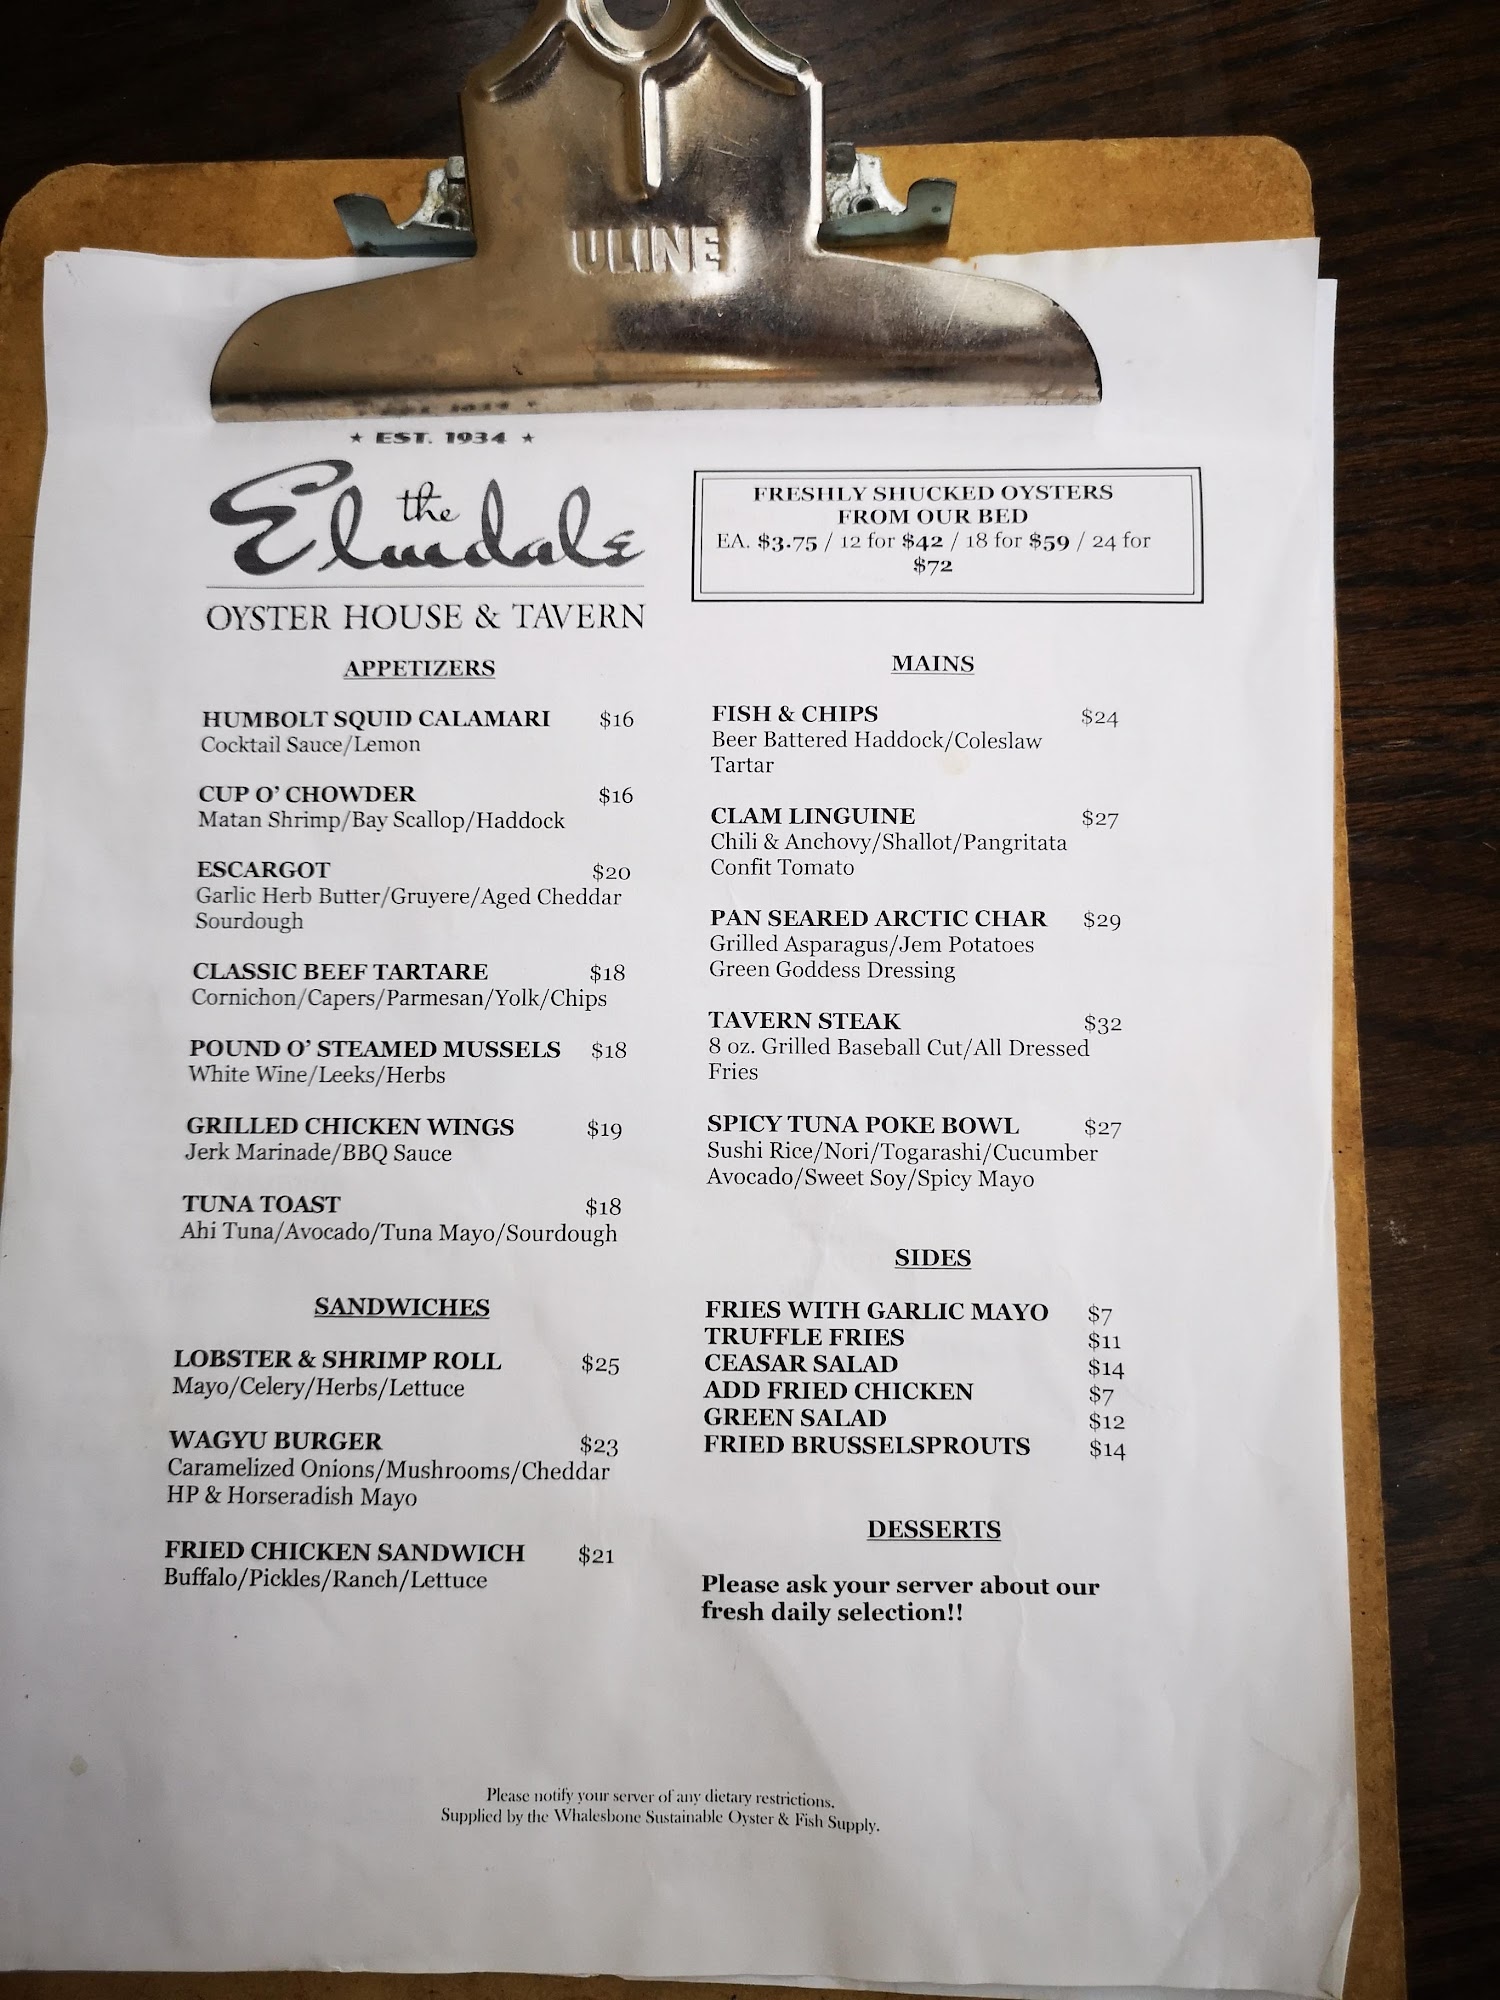 ULINE
★ EST. 1934 ★
the
Elmdale
OYSTER HOUSE & TAVERN
FRESHLY SHUCKED OYSTERS
FROM OUR BED
EA. $3.75 / 12 for $42 / 18 for $59 / 24 for
$72
APPETIZERS
HUMBOLT SQUID CALAMARI $16
Cocktail Sauce/Lemon
CUP O' CHOWDER $16
Matan Shrimp/Bay Scallop/Haddock
ESCARGOT $20
Garlic Herb Butter/Gruyere/Aged Cheddar
Sourdough
CLASSIC BEEF TARTARE $18
Cornichon/Capers/Parmesan/Yolk/Chips
POUND O' STEAMED MUSSELS $18
White Wine/Leeks/Herbs
GRILLED CHICKEN WINGS $19
Jerk Marinade/BBQ Sauce
TUNA TOAST $18
Ahi Tuna/Avocado/Tuna Mayo/Sourdough
SANDWICHES
LOBSTER & SHRIMP ROLL $25
Mayo/Celery/Herbs/Lettuce
WAGYU BURGER $23
Caramelized Onions/Mushrooms/Cheddar
HP & Horseradish Mayo
FRIED CHICKEN SANDWICH $21
Buffalo/Pickles/Ranch/Lettuce
MAINS
FISH & CHIPS $24
Beer Battered Haddock/Coleslaw
Tartar
CLAM LINGUINE $27
Chili & Anchovy/Shallot/Pangritata
Confit Tomato
PAN SEARED ARCTIC CHAR $29
Grilled Asparagus/Jem Potatoes
Green Goddess Dressing
TAVERN STEAK $32
8 oz. Grilled Baseball Cut/All Dressed
Fries
SPICY TUNA POKE BOWL $27
Sushi Rice/Nori/Togarashi/Cucumber
Avocado/Sweet Soy/Spicy Mayo
SIDES
FRIES WITH GARLIC MAYO $7
TRUFFLE FRIES $11
CEASAR SALAD $14
ADD FRIED CHICKEN $7
GREEN SALAD $12
FRIED BRUSSELSPROUTS $14
DESSERTS
Please ask your server about our
fresh daily selection!!
Please notify your server of any dietary restrictions.
Supplied by the Whalesbone Sustainable Oyster & Fish Supply.